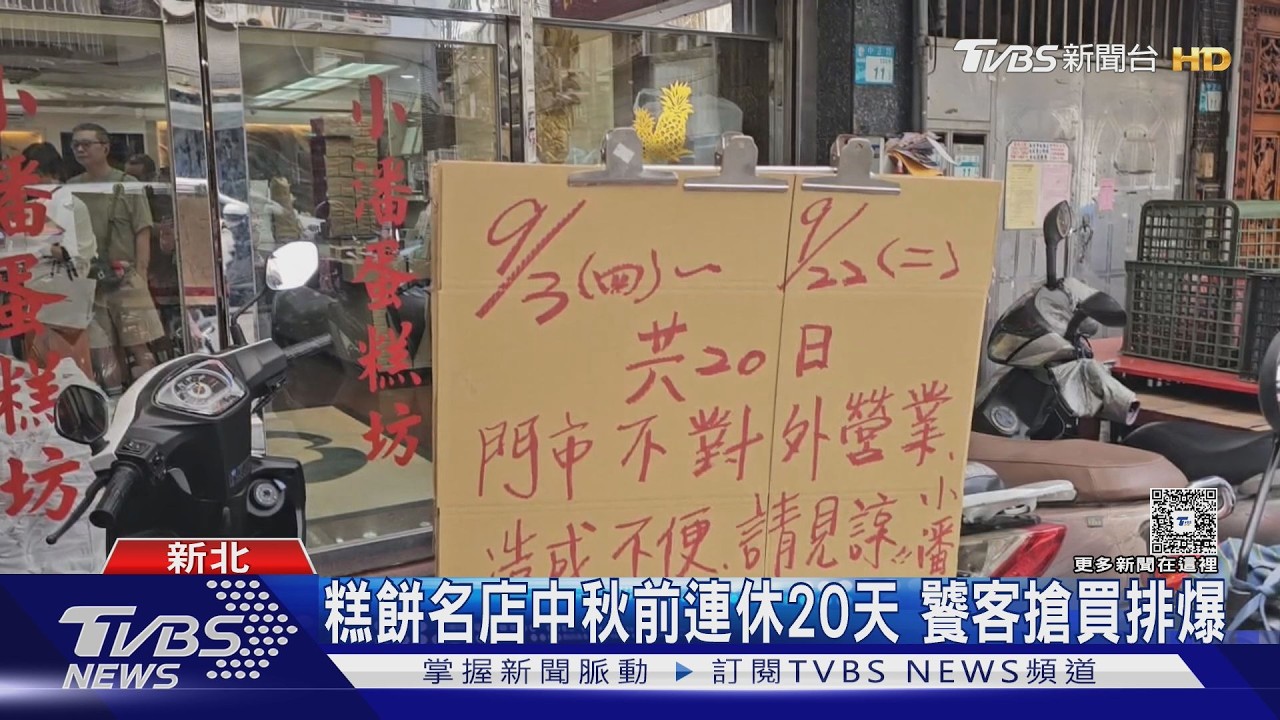 TVBS新聞台 HD
中正路
11
小潘蛋糕坊
小潘蛋糕坊
9/3(四)~9/22(二)
共20日
門市不對外營業、
造成不便、請見諒。小潘
更多新聞在這裡
新北
TVBS NEWS
糕餅名店中秋前連休20天 饕客搶買排爆
掌握新聞脈動 ▶ 訂閱TVBS NEWS頻道